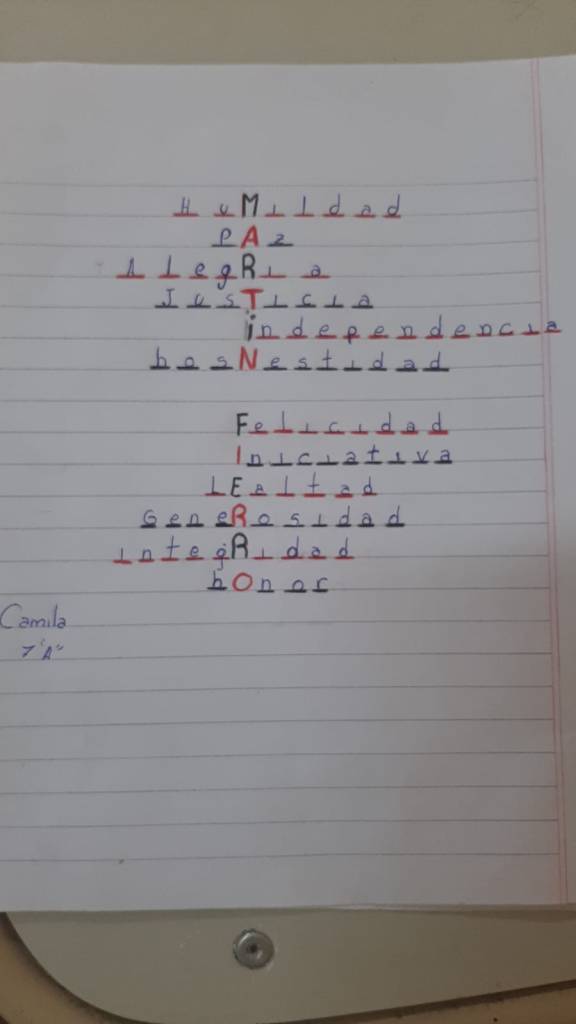 HuMildad
PAz
AlegRia
JusTicia
independencia
hosNestidad
Felicidad
Iniciativa
LEaltad
GeneRosidad
integRidad
hOnor
Camila
7"A"